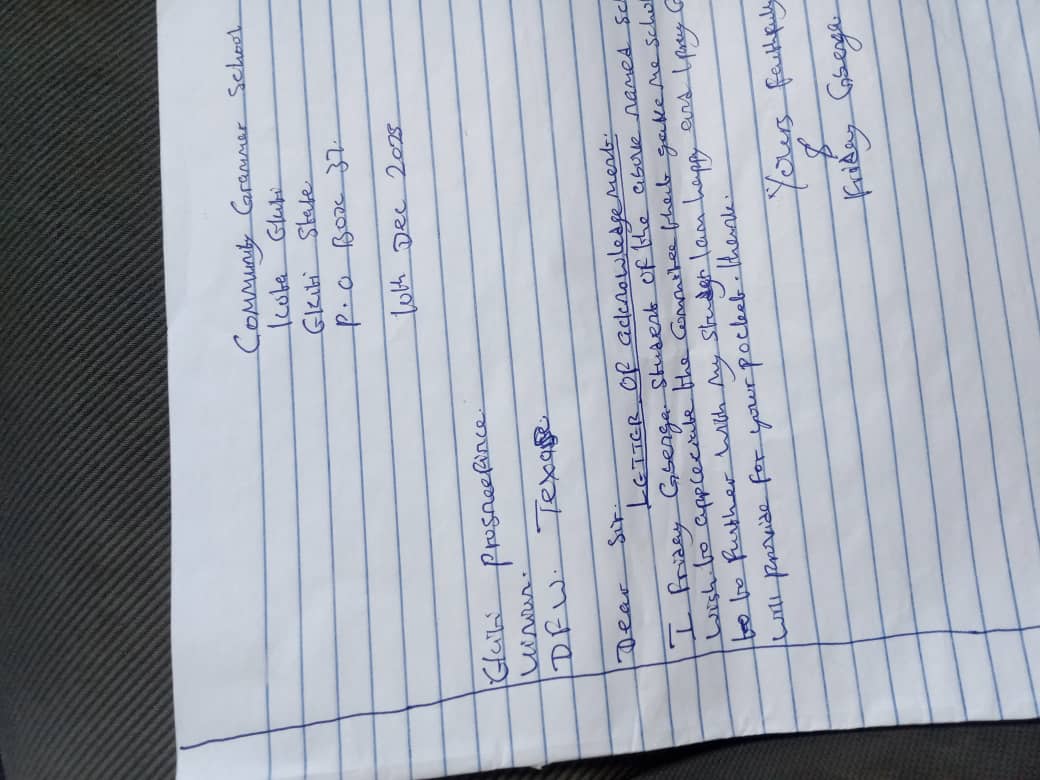 Community Grammer School
Ikota Ekiti
Ekiti State.
P.O Box 37.
10th Dec 2025
Ekiti
Union.
DFW. Texas.
Dear Sir.
LETTER OF acknowledgement.
I Friday Gbenga. Student of the above named Sc
wish to appreciate the Committee that gave me schol
to to further with my Study I am happy and I pray G
will provide for your pocket. thank.
Yours faithfully
Friday Gbenga.